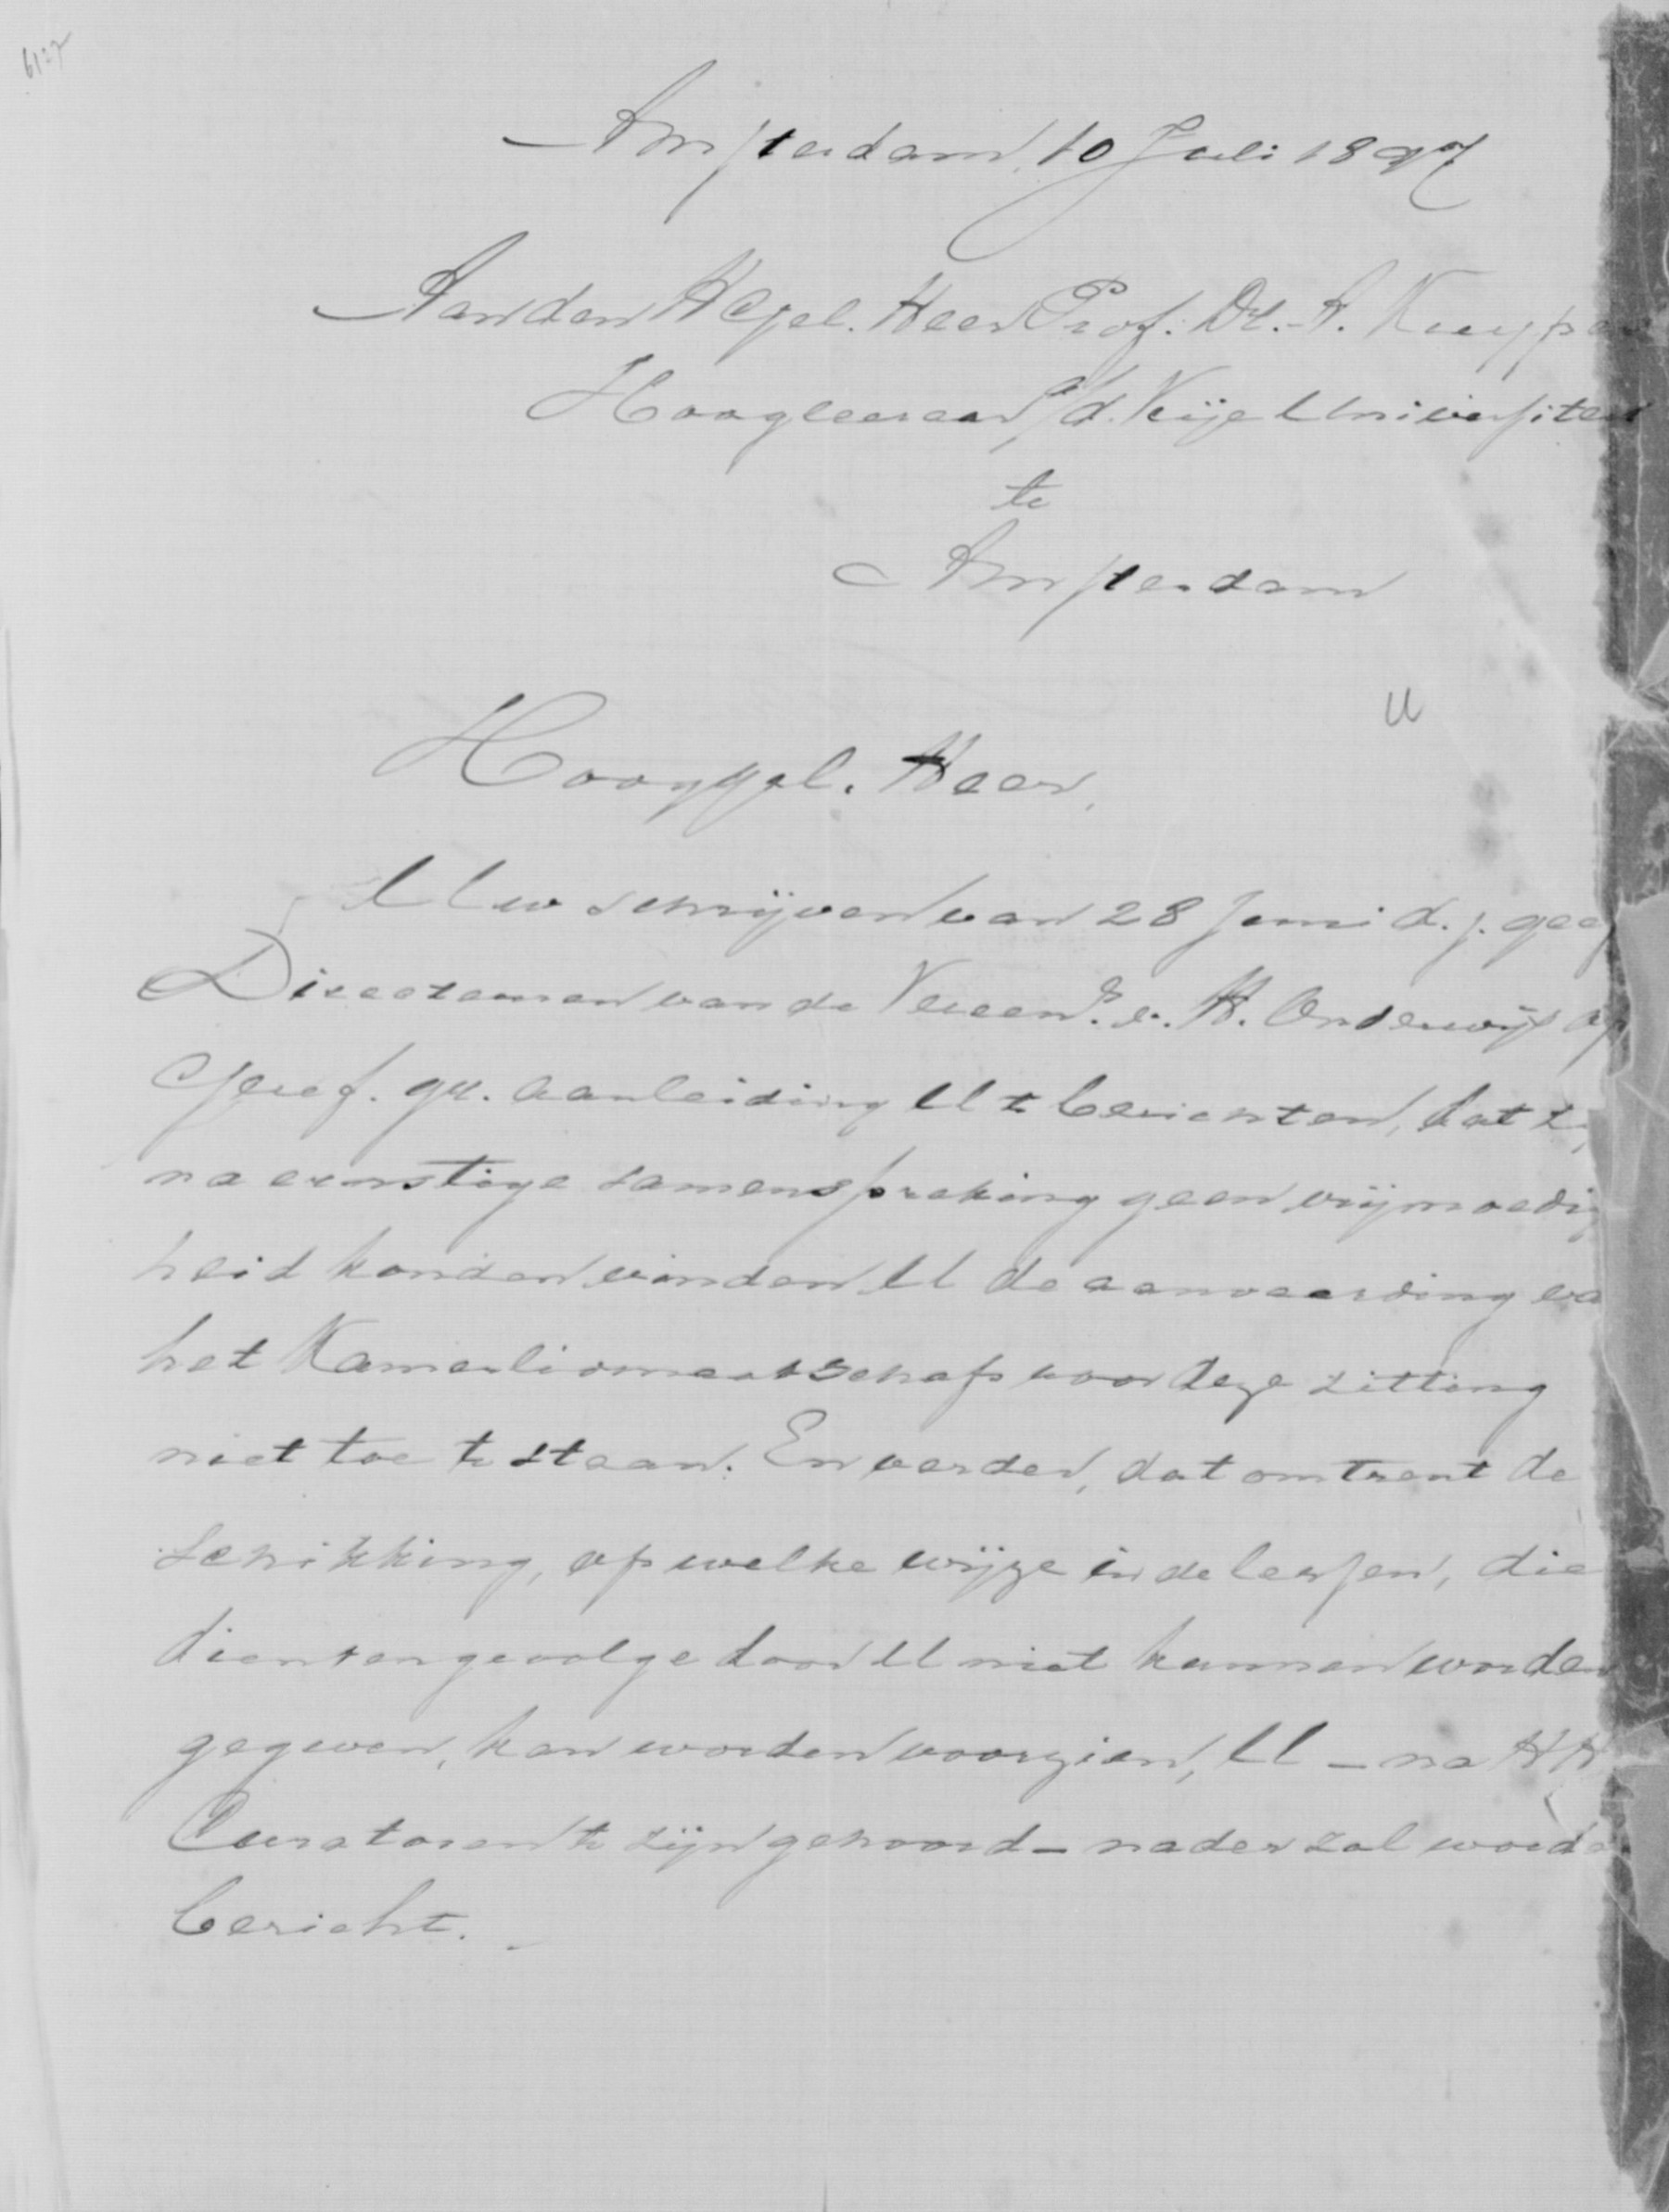 6127
Amsterdam, 10 Juli 1897
Aan den HGel. Heer Prof. Dr. A. Kuyper
Hoogleeraar a/d. Vrije Universiteit
te
Amsterdam
U
Hooggel. Heer,
Uw schrijven van 28 Juni d. j. geeft
Directeuren van de Vereen. v. H. Onderwijs op
Geref. gr. aanleiding U te berichten, dat zij
na ernstige samenspreking geen vrijmoedig
heid konden vinden U de aanvaarding van
het Kamerlidmaatschap voor deze zitting
niet toe te staan. En verder, dat omtrent de
schikking, op welke wijze in de lessen, die
dientengevolge door U niet kunnen worden
gegeven, kan worden voorzien, U – na HH
Curatoren te zijn gehoord – nader zal worden
bericht.